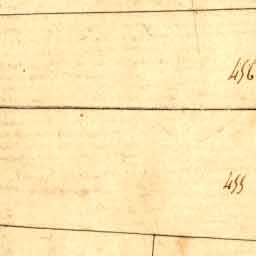 456
455